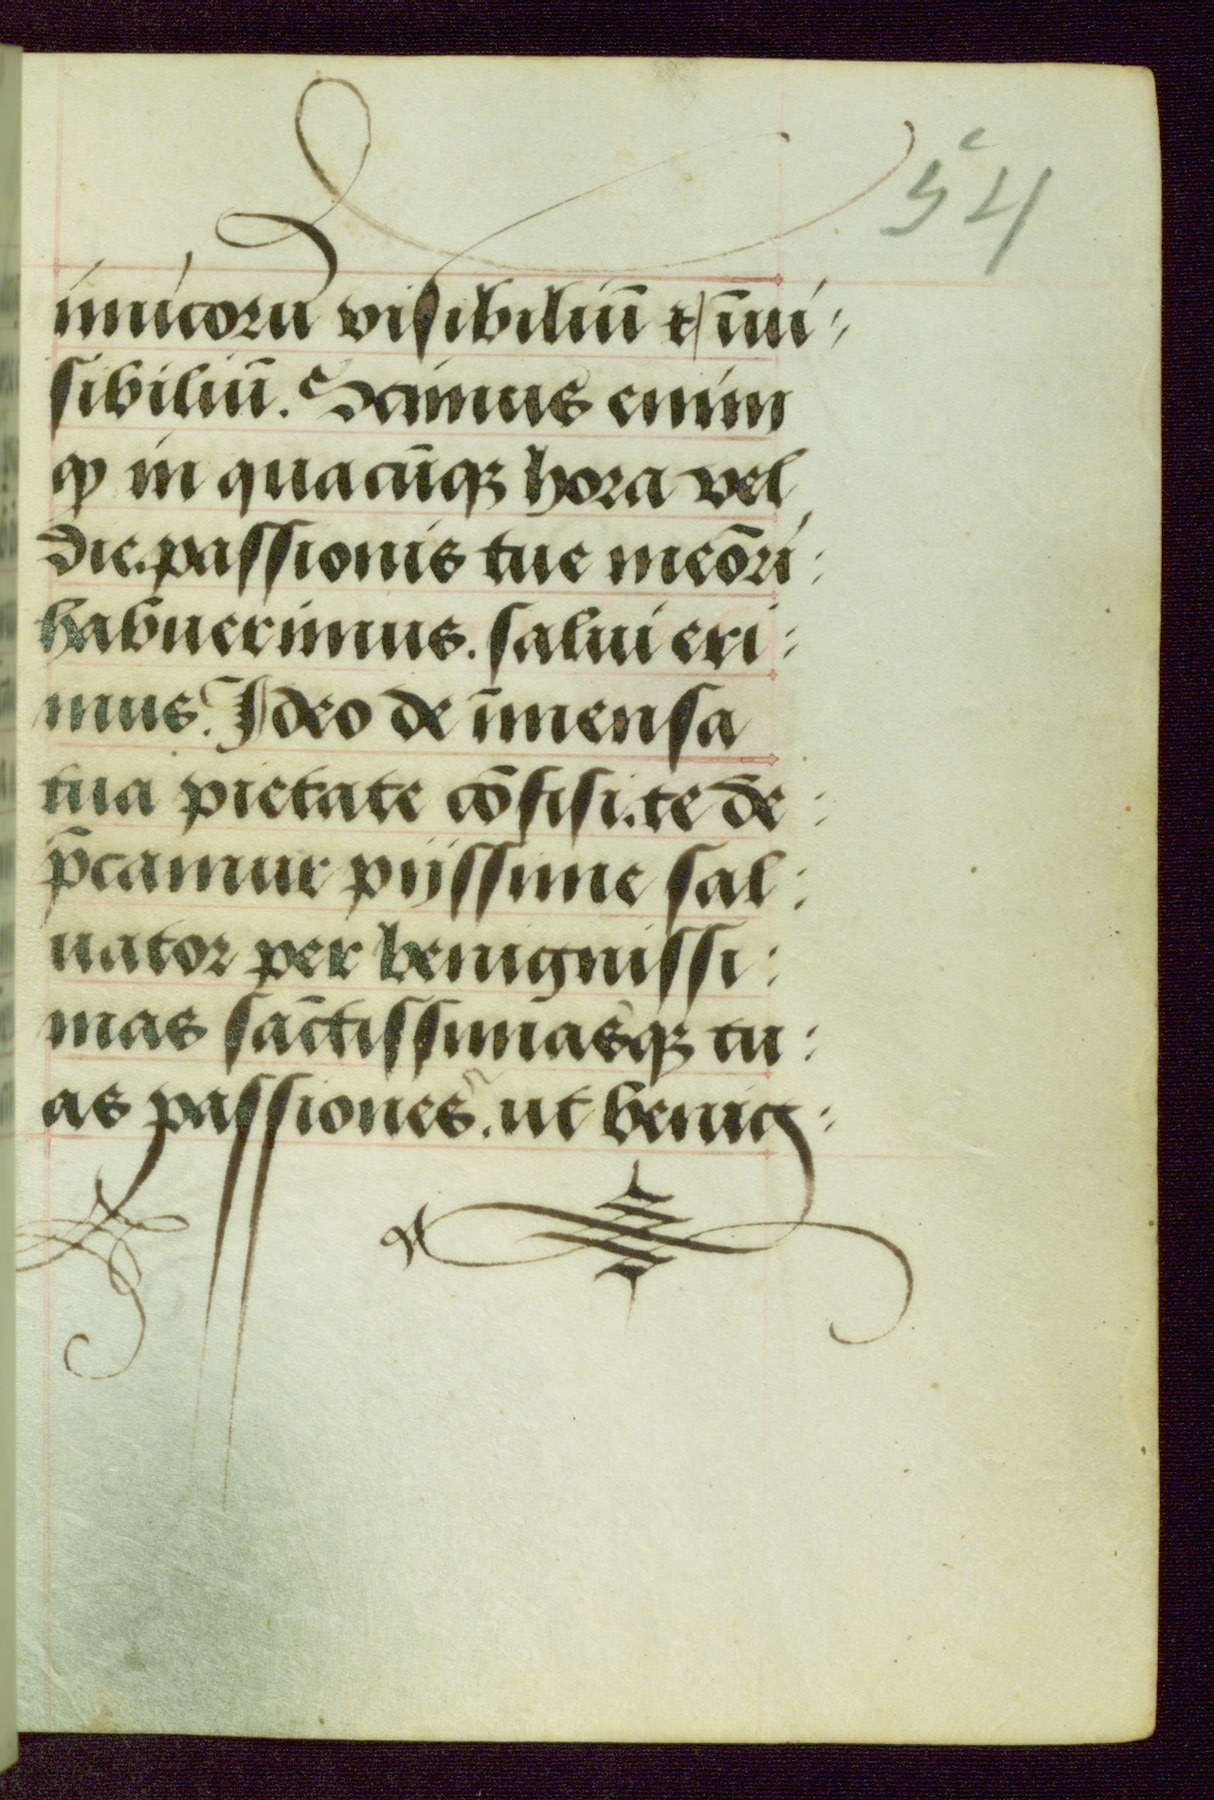 54
inīicoru visibiliū ⁊ īui-
sibiliū. Scimus enim
qꝙ in quacūqꝫ hora vel
die. passionis tue meōri-
habuerimus. salui eri-
mus. Ideo de īmensa
tua pietate cōfisi. te de-
p̄camur pijssime sal-
uator per benignissi-
mas sāctissimasqꝫ tu-
as passiones. ut benig-